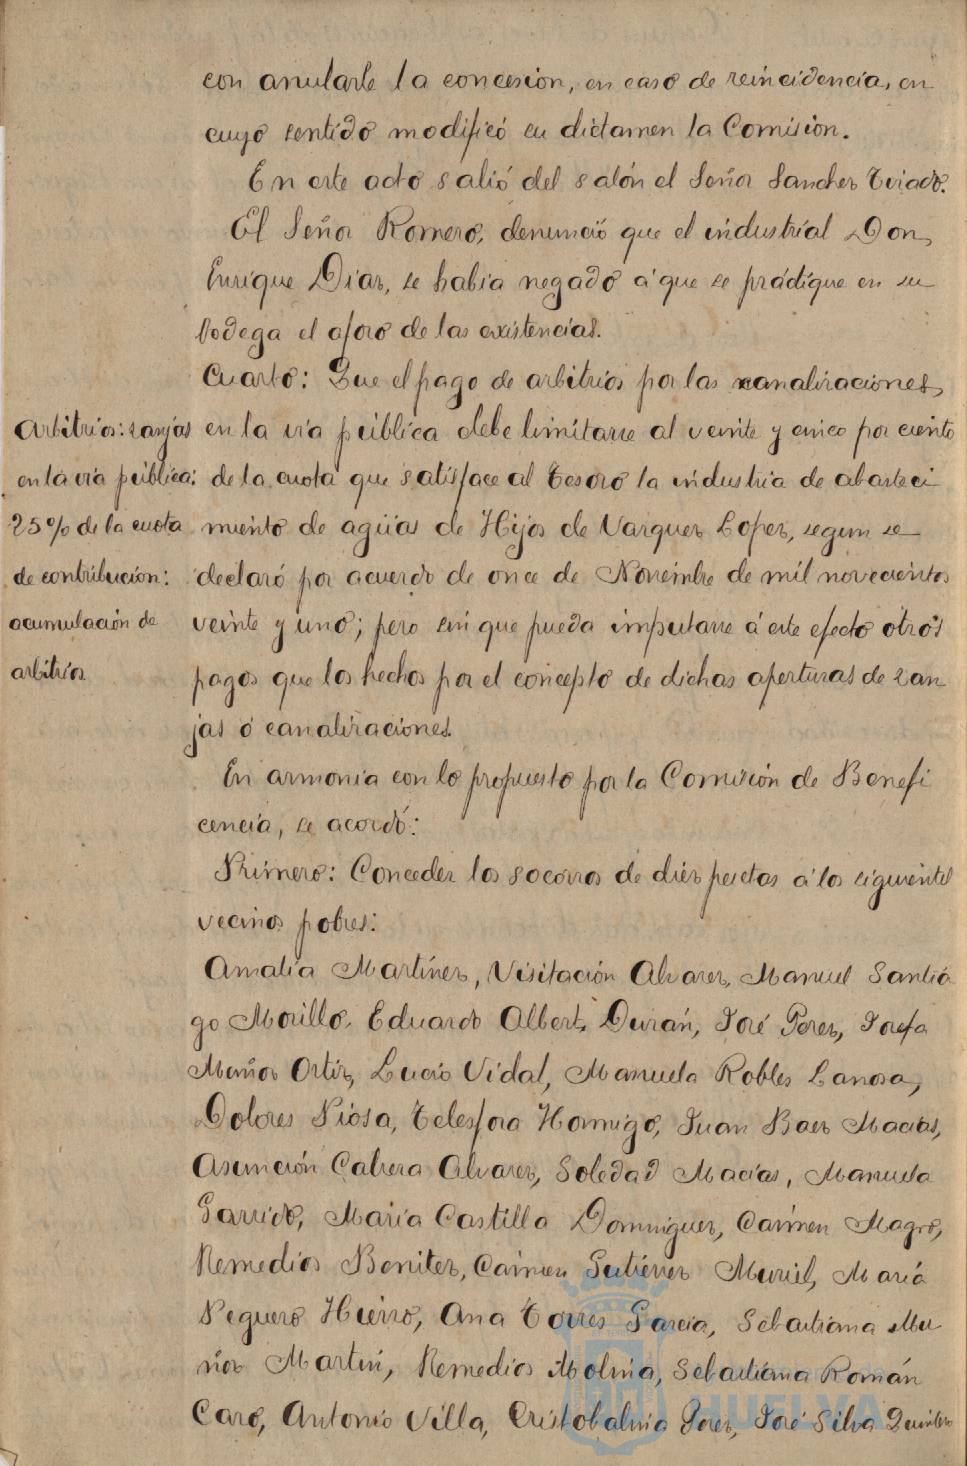 con anularle la concesion, en caso de reincidencia, en
cuyo sentido modificó su dictamen la Comision.
En este acto salió del salón el Señor Sanchez Tirado.
El Señor Romero, denunció que el industrial Don
Enrique Diaz, se habia negado á que se prádique en su
bodega el aforo de las existencias.
Cuarto: Que el pago de arbitrios por las canalizaciones
en la via pública debe limitarse al veinte y cinco por ciento
de la cuota que satisface al Tesoro la industria de abasteci
miento de aguas de Hijos de Vazquez Lopez, segun se
declaró por acuerdo de once de Noviembre de mil novecientos
veinte y uno; pero sin que pueda imputarse á este efecto otros
pagos que los hechos por el concepto de dichas aperturas de zan
jas ó canalizaciones.
Arbitrios: zanjas
en la via pública:
25% de la cuota
de contribución:
acumulación de
arbitrios
En armonia con lo propuesto por la Comisión de Benefi
cencia, se acordó:
Primero: Conceder los socorros de diez pesetas á los siguientes
vecinos pobres:
Amalia Martinez, Visitación Alvarez, Manuel Santia
go Morillo, Eduardo Albert Durán, José Perez, Josefa
Muñoz Ortiz, Lucio Vidal, Manuela Robles Lanosa,
Dolores Piosa, Telesfora Hormigo, Juan Baez Macias,
Asunción Cabrera Alvarez, Soledad Macias, Manuela
Garrido, Maria Castilla Dominguez, Carmen Magro,
Remedios Benitez, Carmen Gutierrez Muriel, Maria
Peguero Hierro, Ana Torres Garcia, Sebastiana Mu
ñoz Martin, Remedios Molina, Sebastiana Román
Caro, Antonio Villa, Cristobalina Perez, José Silva Quintero
HUELVA